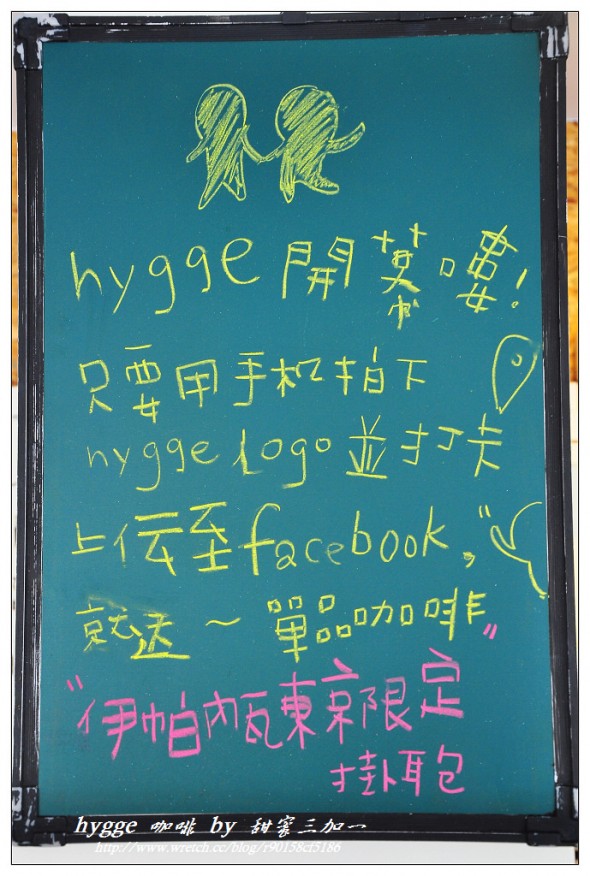 hygge 開幕嘍!
只要用手机拍下
hygge logo 並打卡
上伝至facebook,"
就送~單品咖啡"
"伊帕內瓦東京限定
掛耳包
hygge 咖啡 by 甜蜜三加一
http://www.wretch.cc/blog/r90158cf5186